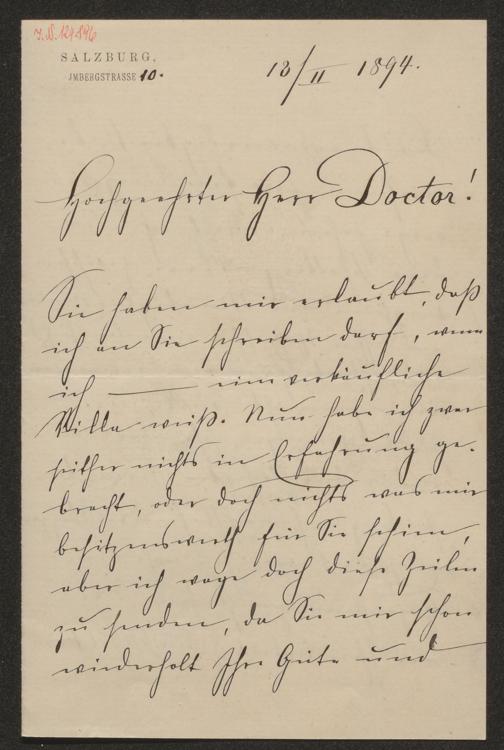 I.N. 124.896
SALZBURG,
IMBERGSTRASSE 10.
18/II 1894.
Hochgeehrter Herr Doctor!
Sie haben mir erlaubt, daß
ich an Sie schreiben darf, wenn
ich ——— eine verkäufliche
Villa weiß. Nun habe ich zwar
seither nichts in Erfahrung ge-
bracht, oder doch nichts was mir
besitzenswerth für Sie schien,
aber ich wage doch diese Zeilen
zu senden, da Sie mir schon
wiederholt Ihre Güte und